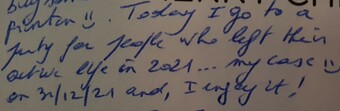 fiction ☺. Today I go to a
party for people who left their
active life in 2021... my case ☺
on 31/12/21 and, I enjoy it!